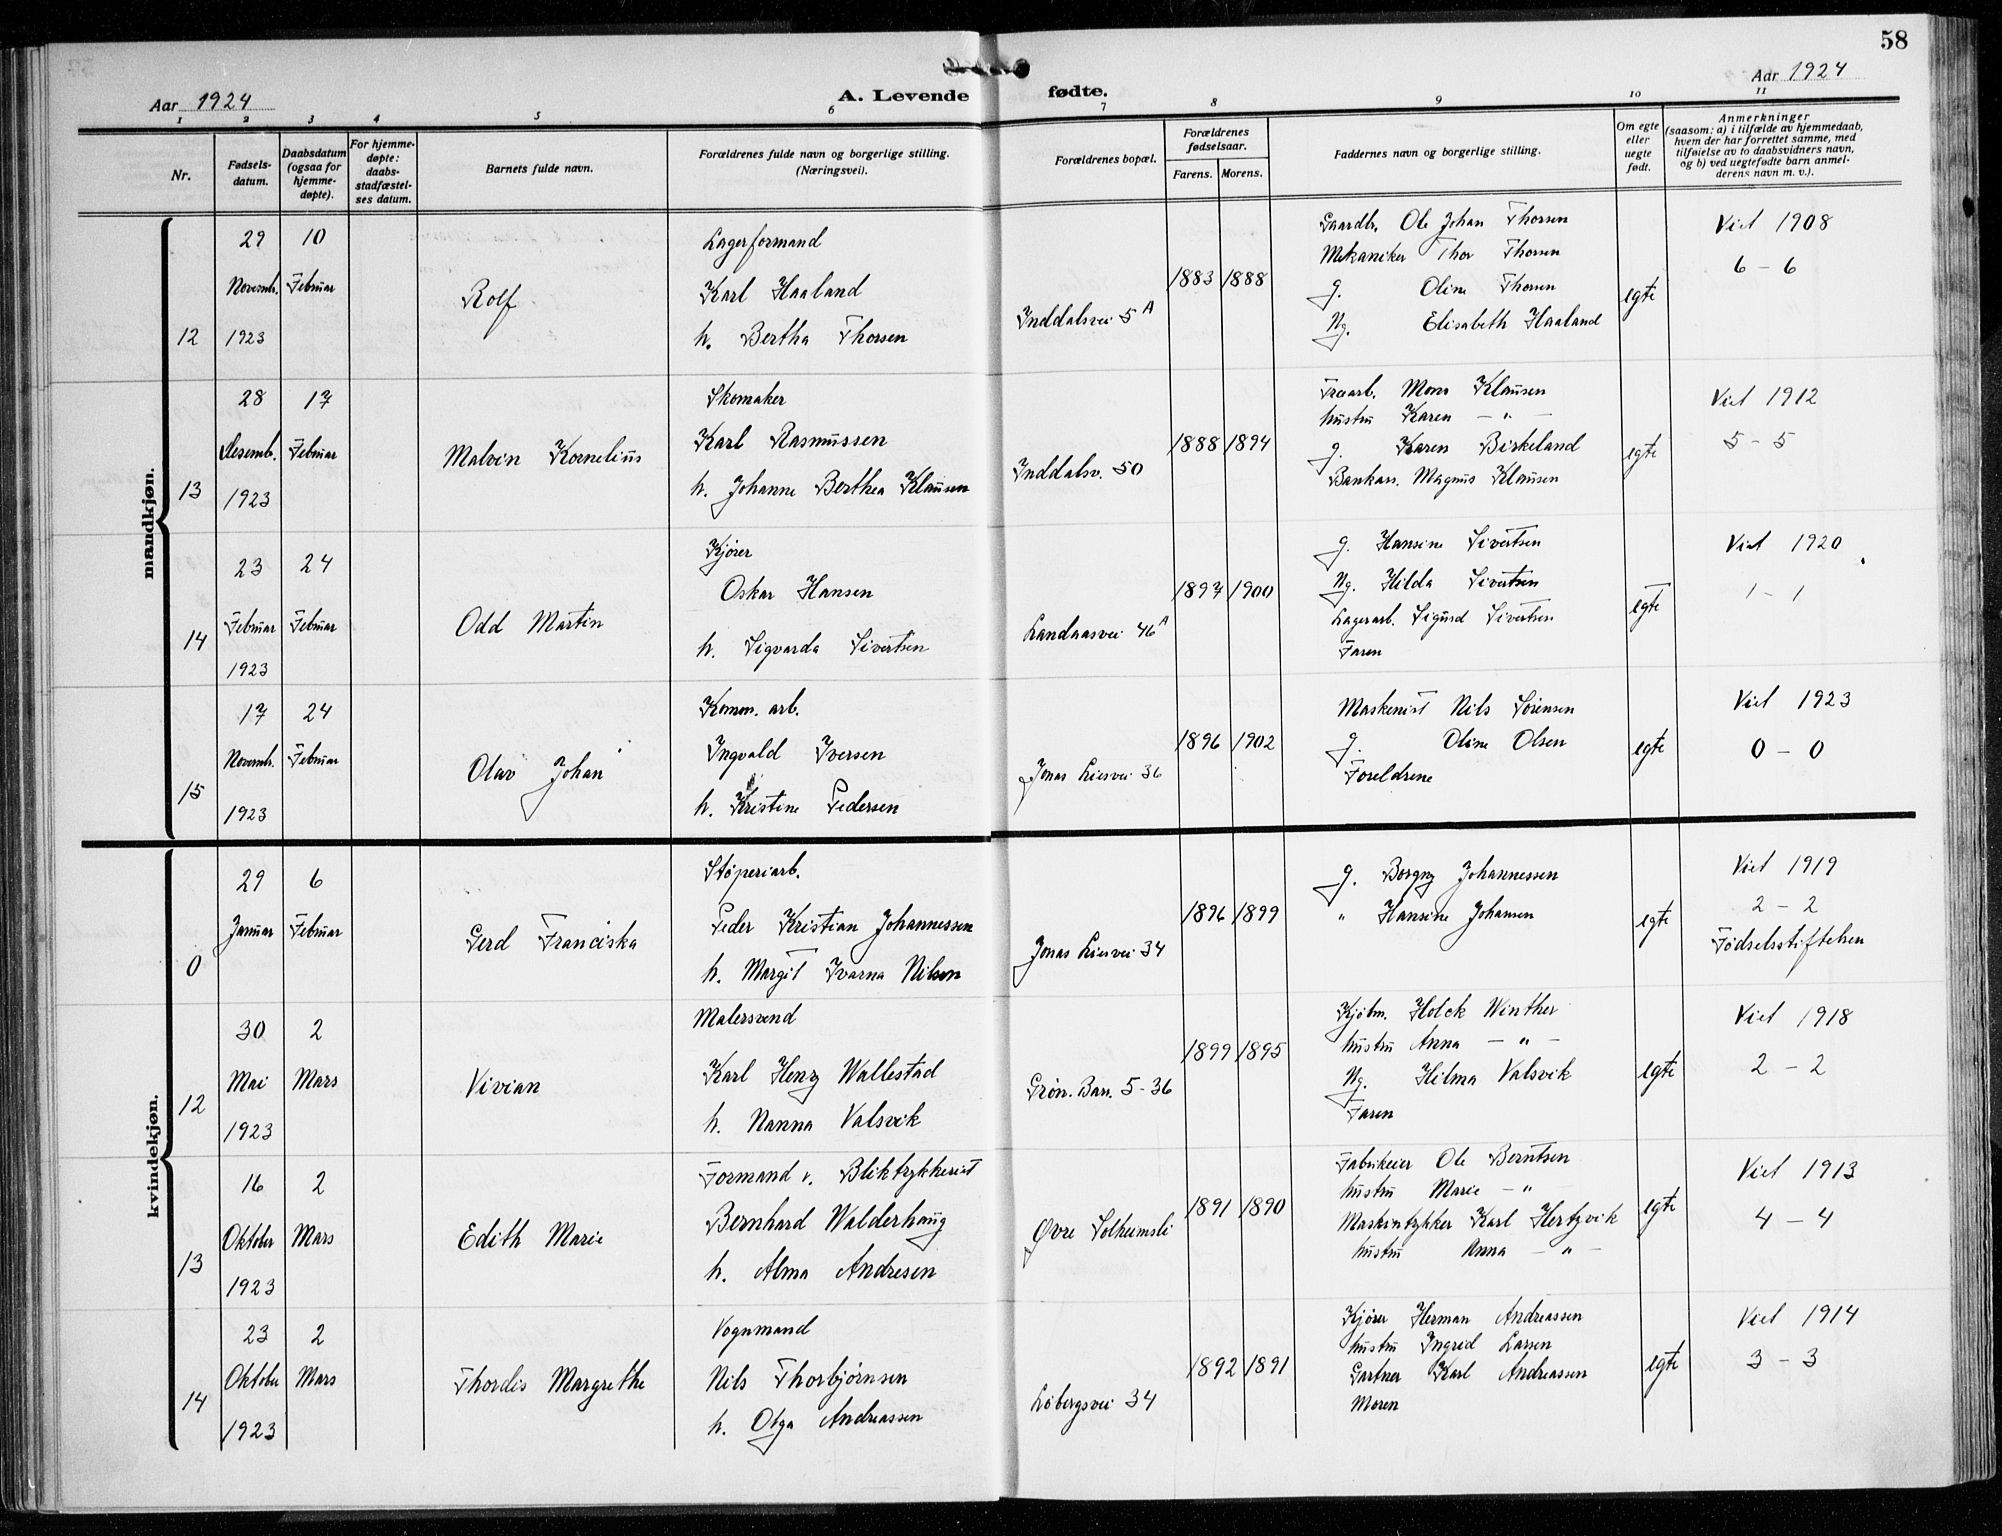 58
Aar 1924
A. Levende fødte.
Aar 1924
1 2 3 4 5 6 7 8 9 10 11
Nr.
Fødsels-
datum.
Daabsdatum
(ogsaa for
hjemme-
døpte).
For hjemme-
døpte:
daabs-
stadfæstel-
ses datum.
Barnets fulde navn.
Forældrenes fulde navn og borgerlige stilling.
(Næringsvei).
Forældrenes bopæl.
Forældrenes
fødselsaar.
Farens. Morens.
Faddernes navn og borgerlige stilling.
Om egte
eller
uegte
født.
Anmerkninger
(saasom: a) i tilfælde av hjemmedaab,
hvem der har forrettet samme, med
tilføielse av to daabsvidners navn,
og b) ved uegtefødte barn anmel-
derens navn m. v.).
mandkjøn.
12
29
Novemb.
1923
10
Februar
Rolf
Lagerformand
Karl Haaland
h. Bertha Thorsen
Inddalsvei 5 A
1883 1888
Gaardbr. Ole Johan Thorsen
Mekaniker Thor Thorsen
g. Oline Thorsen
Ng. Elisabeth Haaland
egte
Viet 1908
6 - 6
13
28
Desemb.
1923
17
Februar
Malvin Kornelius
Skomaker
Karl Rasmussen
h. Johanne Berthea Klausen
Inddalsv. 50
1888 1894
Mons Klausen
hustru Karen — " —
g. Karen Birkeland
Bankass. Magnus Klausen
egte
Viet 1912
5 - 5
14
23
Februar
1923
24
Februar
Odd Martin
Kjører
Oskar Hansen
h. Sigvarda Sivertsen
Landaasvei 46 A
1897 1900
g. Hansine Sivertsen
Ng. Hilda Sivertsen
Lagerarb. Sigurd Sivertsen
Faren
egte
Viet 1920
1 - 1
15
17
Novemb.
1923
24
Februar
Olav Johan
Komm. arb.
Ingvald Iversen
h. Kristine Pedersen
Jonas Liesvei 36
1896 1902
Maskenist Nils Sørensen
g. Oline Olsen
Foreldrene
egte
Viet 1923
0 - 0
kvindekjøn.
0
29
Januar
6
Februar
Gerd Franciska
Støperiarb.
Peder Kristian Johannessen
h. Margit Ivarna Nilsen
Jonas Liesvei 34
1896 1899
g. Borgny Johannessen
" Hansine Johansen
egte
Viet 1919
2 - 2
Fødselsstiftelsen
12
30
Mai
1923
2
Mars
Vivian
Malersvend
Karl Henry Wallestad
h. Nanna Valsvik
Grøn. Bar. 5-36
1899 1895
Kjøbm. Holck Winther
hustru Anna — " —
Ng. Hilma Valsvik
Faren
egte
Viet 1918
2 - 2
13
16
Oktober
1923
2
Mars
Edith Marie
Formand v. Bliktrykkeriet
Bernhard Walderhaug
h. Alma Andresen
Øvre Solheimsli
1891 1890
Fabrikeier Ole Berntsen
hustru Marie — "
Maskintrykker Karl Hertzvik
hustru Anna — " —
egte
Viet 1913
4 - 4
14
23
Oktober
1923
2
Mars
Thordis Margrethe
Vognmand
Nils Thorbjørnsen
h. Olga Andreassen
Løbergsvei 34
1892 1891
Kjører Herman Andreassen
hustru Ingrid Larsen
Gartner Karl Andreassen
Moren
egte
Viet 1914
3 - 3